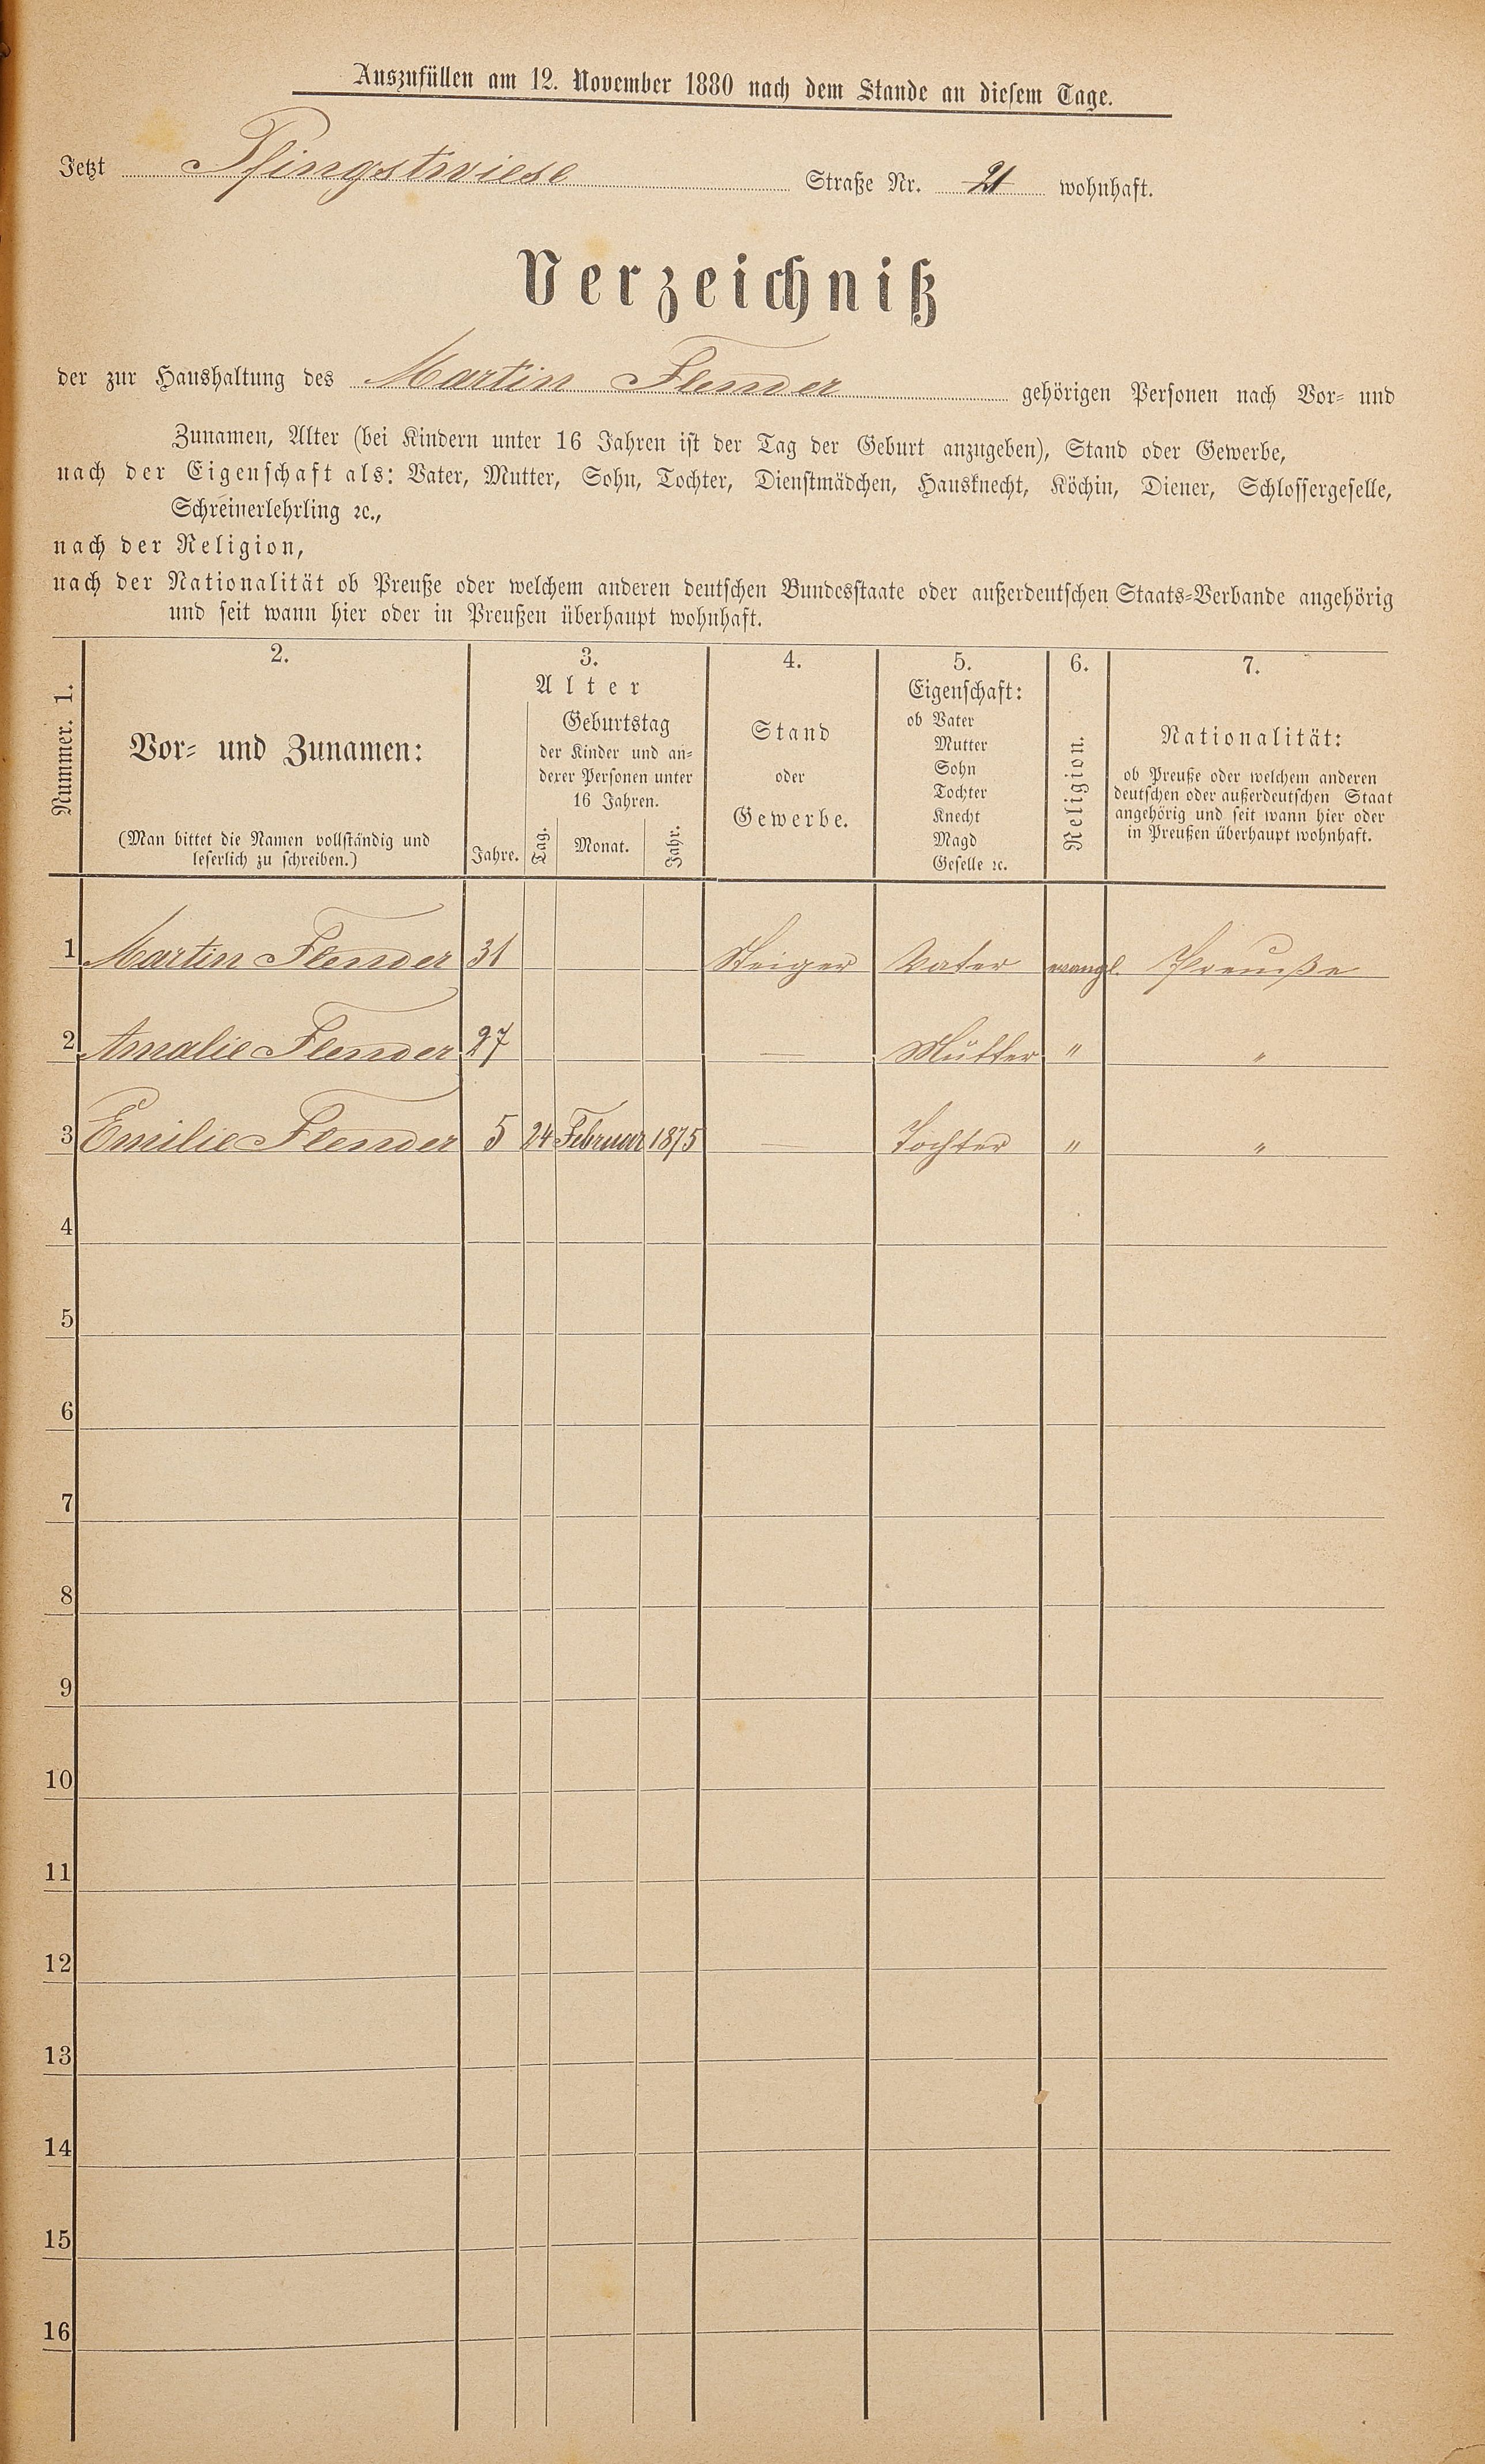 Auszufüllen am 12. November 1880 nach dem Stande an diesem Tage.
Jetzt Pfingstwiese Straße Nr. 21 wohnhaft.
Verzeichniß
der zur Haushaltung des Martin Flender gehörigen Personen nach Vor- und
Zunamen, Alter (bei Kindern unter 16 Jahren ist der Tag der Geburt anzugeben), Stand oder Gewerbe,
nach der Eigenschaft als: Vater, Mutter, Sohn, Tochter, Dienstmädchen, Hausknecht, Köchin, Diener, Schlossergeselle,
Schreinerlehrling ꝛc.,
nach der Religion,
nach der Nationalität ob Preuße oder welchem anderen deutschen Bundesstaate oder außerdeutschen Staats-Verbande angehörig
und seit wann hier oder in Preußen überhaupt wohnhaft.
Nummer. 1.
2.
Vor- und Zunamen:
(Man bittet die Namen vollständig und
leserlich zu schreiben.)
3.
Alter
Jahre.
Geburtstag
der Kinder und an-
derer Personen unter
16 Jahren.
Tag. Monat. Jahr.
4.
Stand
oder
Gewerbe.
5.
Eigenschaft:
ob Vater
Mutter
Sohn
Tochter
Knecht
Magd
Geselle ꝛc.
6.
Religion.
7.
Nationalität:
ob Preuße oder welchem anderen
deutschen oder außerdeutschen Staat
angehörig und seit wann hier oder
in Preußen überhaupt wohnhaft.
1 Martin Flender 31 Steiger Vater evangl. Preuße
2 Amalie Flender 27 — Mutter " "
3 Emilie Flender 5 24 Februar 1875 — Tochter " "
4
5
6
7
8
9
10
11
12
13
14
15
16